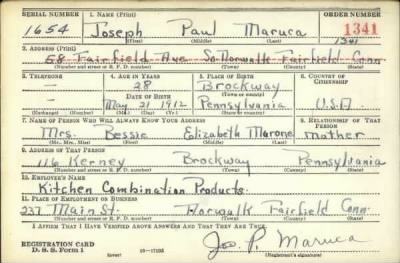 SERIAL NUMBER 1. NAME (Print) ORDER NUMBER
1654 Joseph Paul Maruca 1341
(First) (Middle) (Last) 1341
2. ADDRESS (Print)
58 Fairfield Ave So. Norwalk Fairfield Conn
(Number and street or R. F. D. number) (Town) (County) (State)
3. TELEPHONE 4. AGE IN YEARS 5. PLACE OF BIRTH 6. COUNTRY OF CITIZENSHIP
— 28 Brockway
DATE OF BIRTH (Town or county)
— May 21 1912 Pennsylvania U.S.A.
(Mo.) (Day) (Yr.) (State or country)
7. NAME OF PERSON WHO WILL ALWAYS KNOW YOUR ADDRESS 8. RELATIONSHIP OF THAT PERSON
Mrs. Bessie Elizabeth Marone Mother
(Mr., Mrs., Miss) (First) (Middle) (Last)
9. ADDRESS OF THAT PERSON
116 Kerney Brockway Pennsylvania
(Number and street or R. F. D. number) (Town) (County) (State)
10. EMPLOYER'S NAME
Kitchen Combination Products.
11. PLACE OF EMPLOYMENT OR BUSINESS
237 Main St. Norwalk Fairfield Conn.
(Number and street or R. F. D. number) (Town) (County) (State)
I AFFIRM THAT I HAVE VERIFIED ABOVE ANSWERS AND THAT THEY ARE TRUE.
REGISTRATION CARD
D. S. S. Form 1 (over) Jos. P. Maruca
(Registrant's signature)